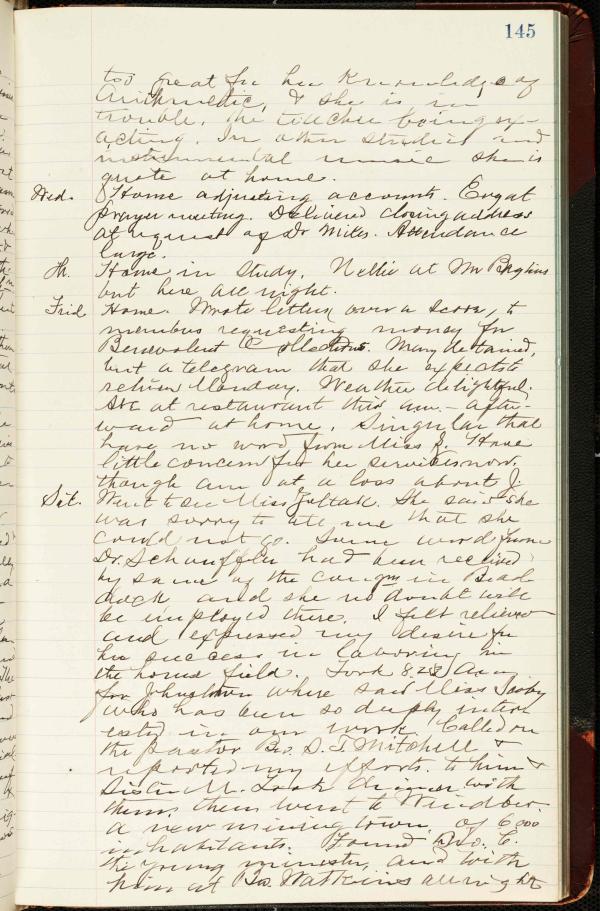 145
too great for her knowledge of
Arithmetic, & she is in
trouble, the teacher being ex-
acting. In other studies and
instrumental music she is
quite at home.
Wed. Home adjusting accounts. Eve at
prayer meeting. Delivered closing address
at request of Dr Mills. Attendance
large.
Th. Home in study. Nellie at Mr
but here all night.
Frid Home. Wrote letters, over a score, to
members requesting money for
Benevolent Collections. Mary detained,
but a telegram that she expects to
return Monday. Weather delightful.
Ate at restaurant this am. - after-
ward at home. Singular that
have no word from Miss J. Have
little concern for her services now,
though am at a loss about J.
Sat. Went to see Miss She said she
was sorry to tell me that she
could not go. Some word from
Dr. Schauffler had been received
by some of the congrn in Brad-
dock and she no doubt will
be employed there. I felt relieved
and expressed my desire for
her success in laboring in
the home field. Took 8.23 am
for Johnstown where saw Miss
who has been so deeply inter
ested in our work. Called on
the pastor Bro. D. T Mitchell &
reported my efforts to him &
Sister M. Took dinner with
them, then went to Windber
a new mining town of 6000
inhabitants. Found Bro. C.
the young minister, and with
him at Bro. Watkins all night